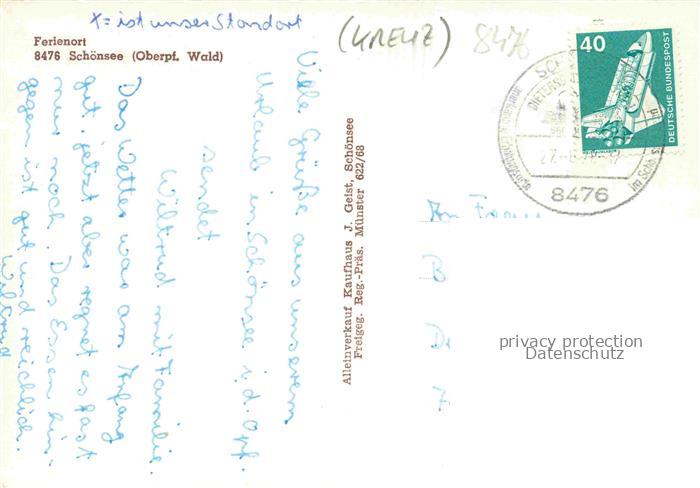 x = ist unser Standort
Ferienort
8476 Schönsee (Oberpf. Wald)
Viele Grüße aus unserem
Urlaub in Schönsee i. d. Opf.
sendet
Wiltrud mit Familie.
Das Wetter war am Anfang
gut, jetzt aber regnet es fast
nur noch. Das Essen hin-
gegen ist gut und reichlich.
Wiltrud
Alleinverkauf Kaufhaus J. Geist, Schönsee
Freigeg. Reg.-Präs. Münster 622/68
(KREUZ) 8476
40
DEUTSCHE BUNDESPOST
8476
An Frau
B
D
7
privacy protection
Datenschutz